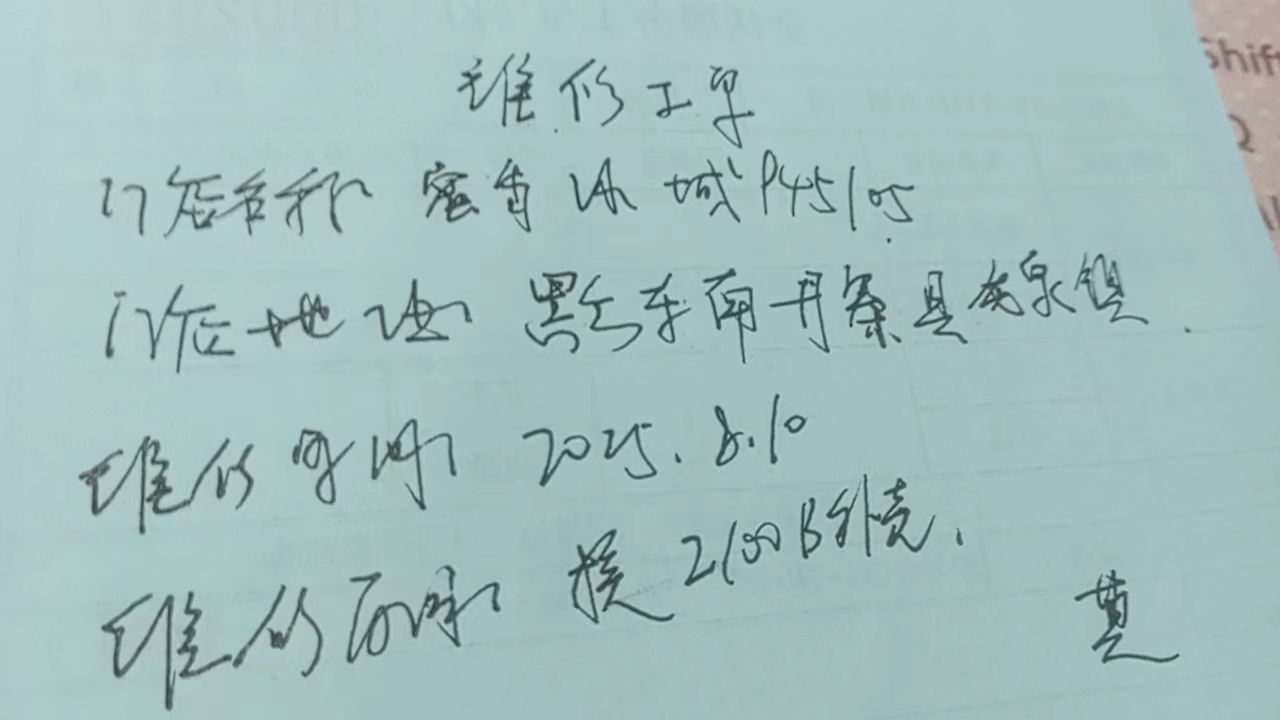 维修工单
门店名称 蜜雪冰城P45105
门店地址 黔东南丹寨县龙泉镇.
维修时间 2025.8.10
维修内容 换2100B外壳.
Shif